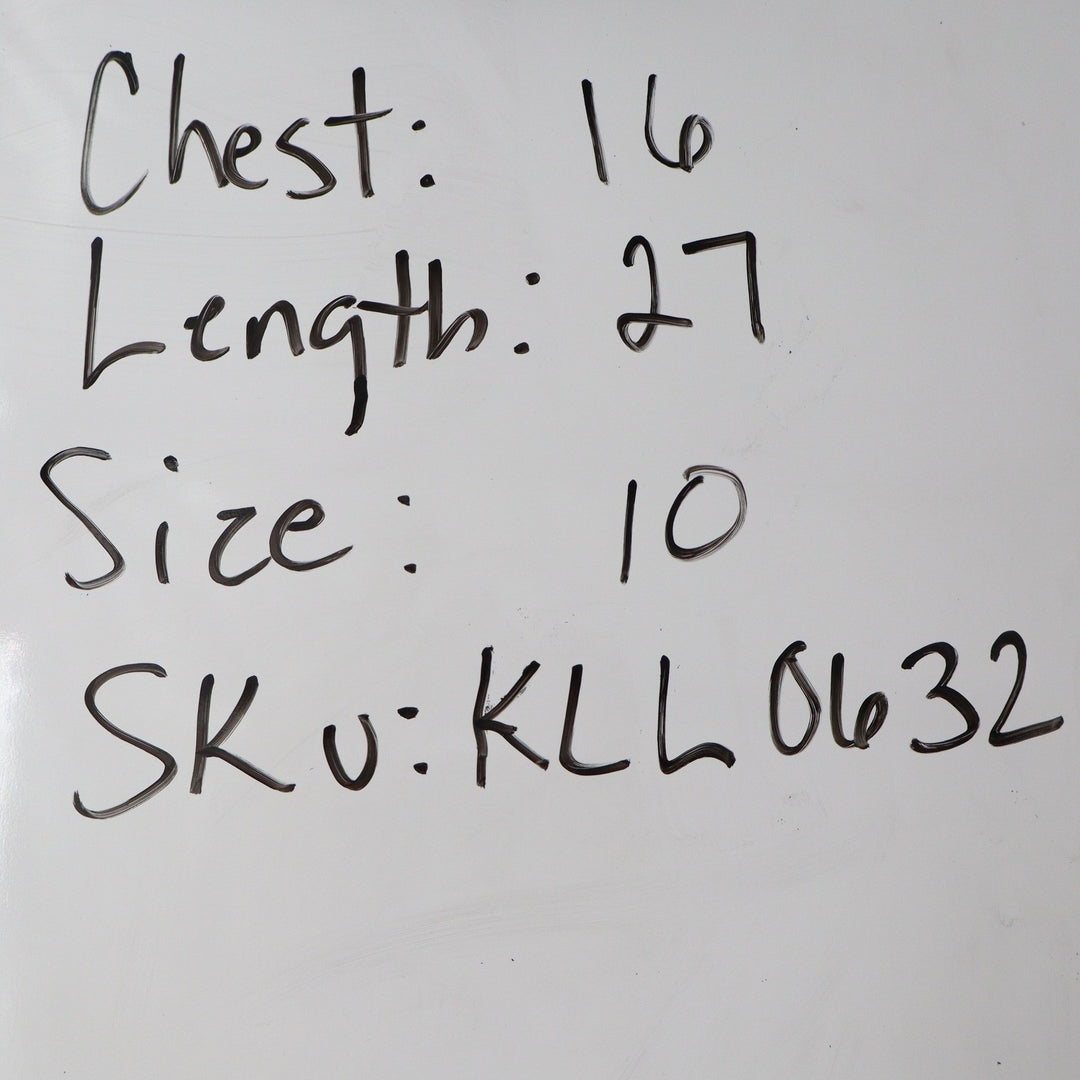 Chest: 16
Length: 27
Size: 10
SKU: KLL0632